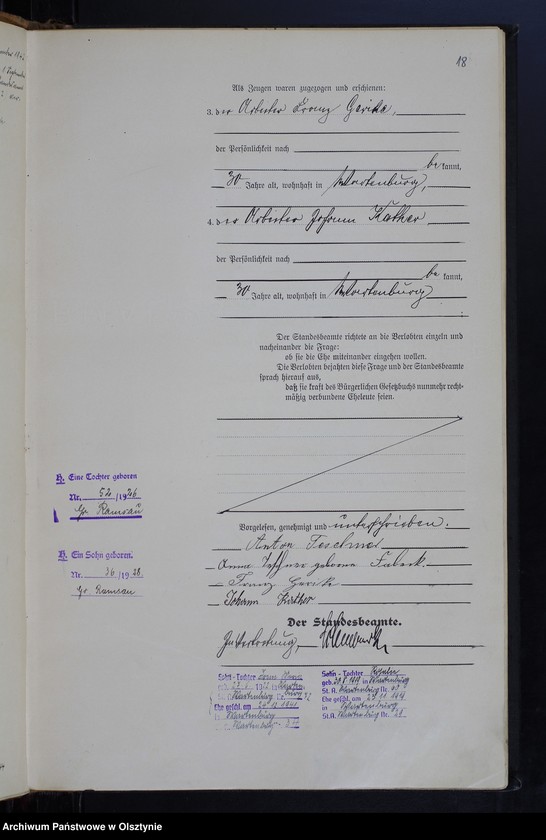 18
Als Zeugen waren zugezogen und erschienen:
3. der Arbeiter Franz Gerick,
der Persönlichkeit nach
be kannt,
30 Jahre alt, wohnhaft in Wartenburg,
4. der Arbeiter Johann Kather
der Persönlichkeit nach
be kannt,
30 Jahre alt, wohnhaft in Wartenburg
Der Standesbeamte richtete an die Verlobten einzeln und
nacheinander die Frage:
ob sie die Ehe miteinander eingehen wollen.
Die Verlobten bejahten diese Frage und der Standesbeamte
sprach hierauf aus,
daß sie kraft des Bürgerlichen Gesetzbuchs nunmehr recht-
mäßig verbundene Eheleute seien.
H. Eine Tochter geboren
Nr. 52/1926
Gr Ramsau
Vorgelesen, genehmigt und unterschrieben.
Anton Teschner
Anna Teschner geborene Fabeck
Franz Gerick
Johann Kather
H. Ein Sohn geboren.
Nr. 36/1928
Gr Ramsau
Der Standesbeamte.
In Vertretung,
Sohn - Tochter
Wartenburg
Ehe geschl. am
Wartenburg
Wartenburg
Sohn - Tochter
geb. in Wartenburg
St. A. Wartenburg Nr.
Ehe geschl. am
in Wartenburg
St.A. Wartenburg Nr.
Archiwum Państwowe w Olsztynie